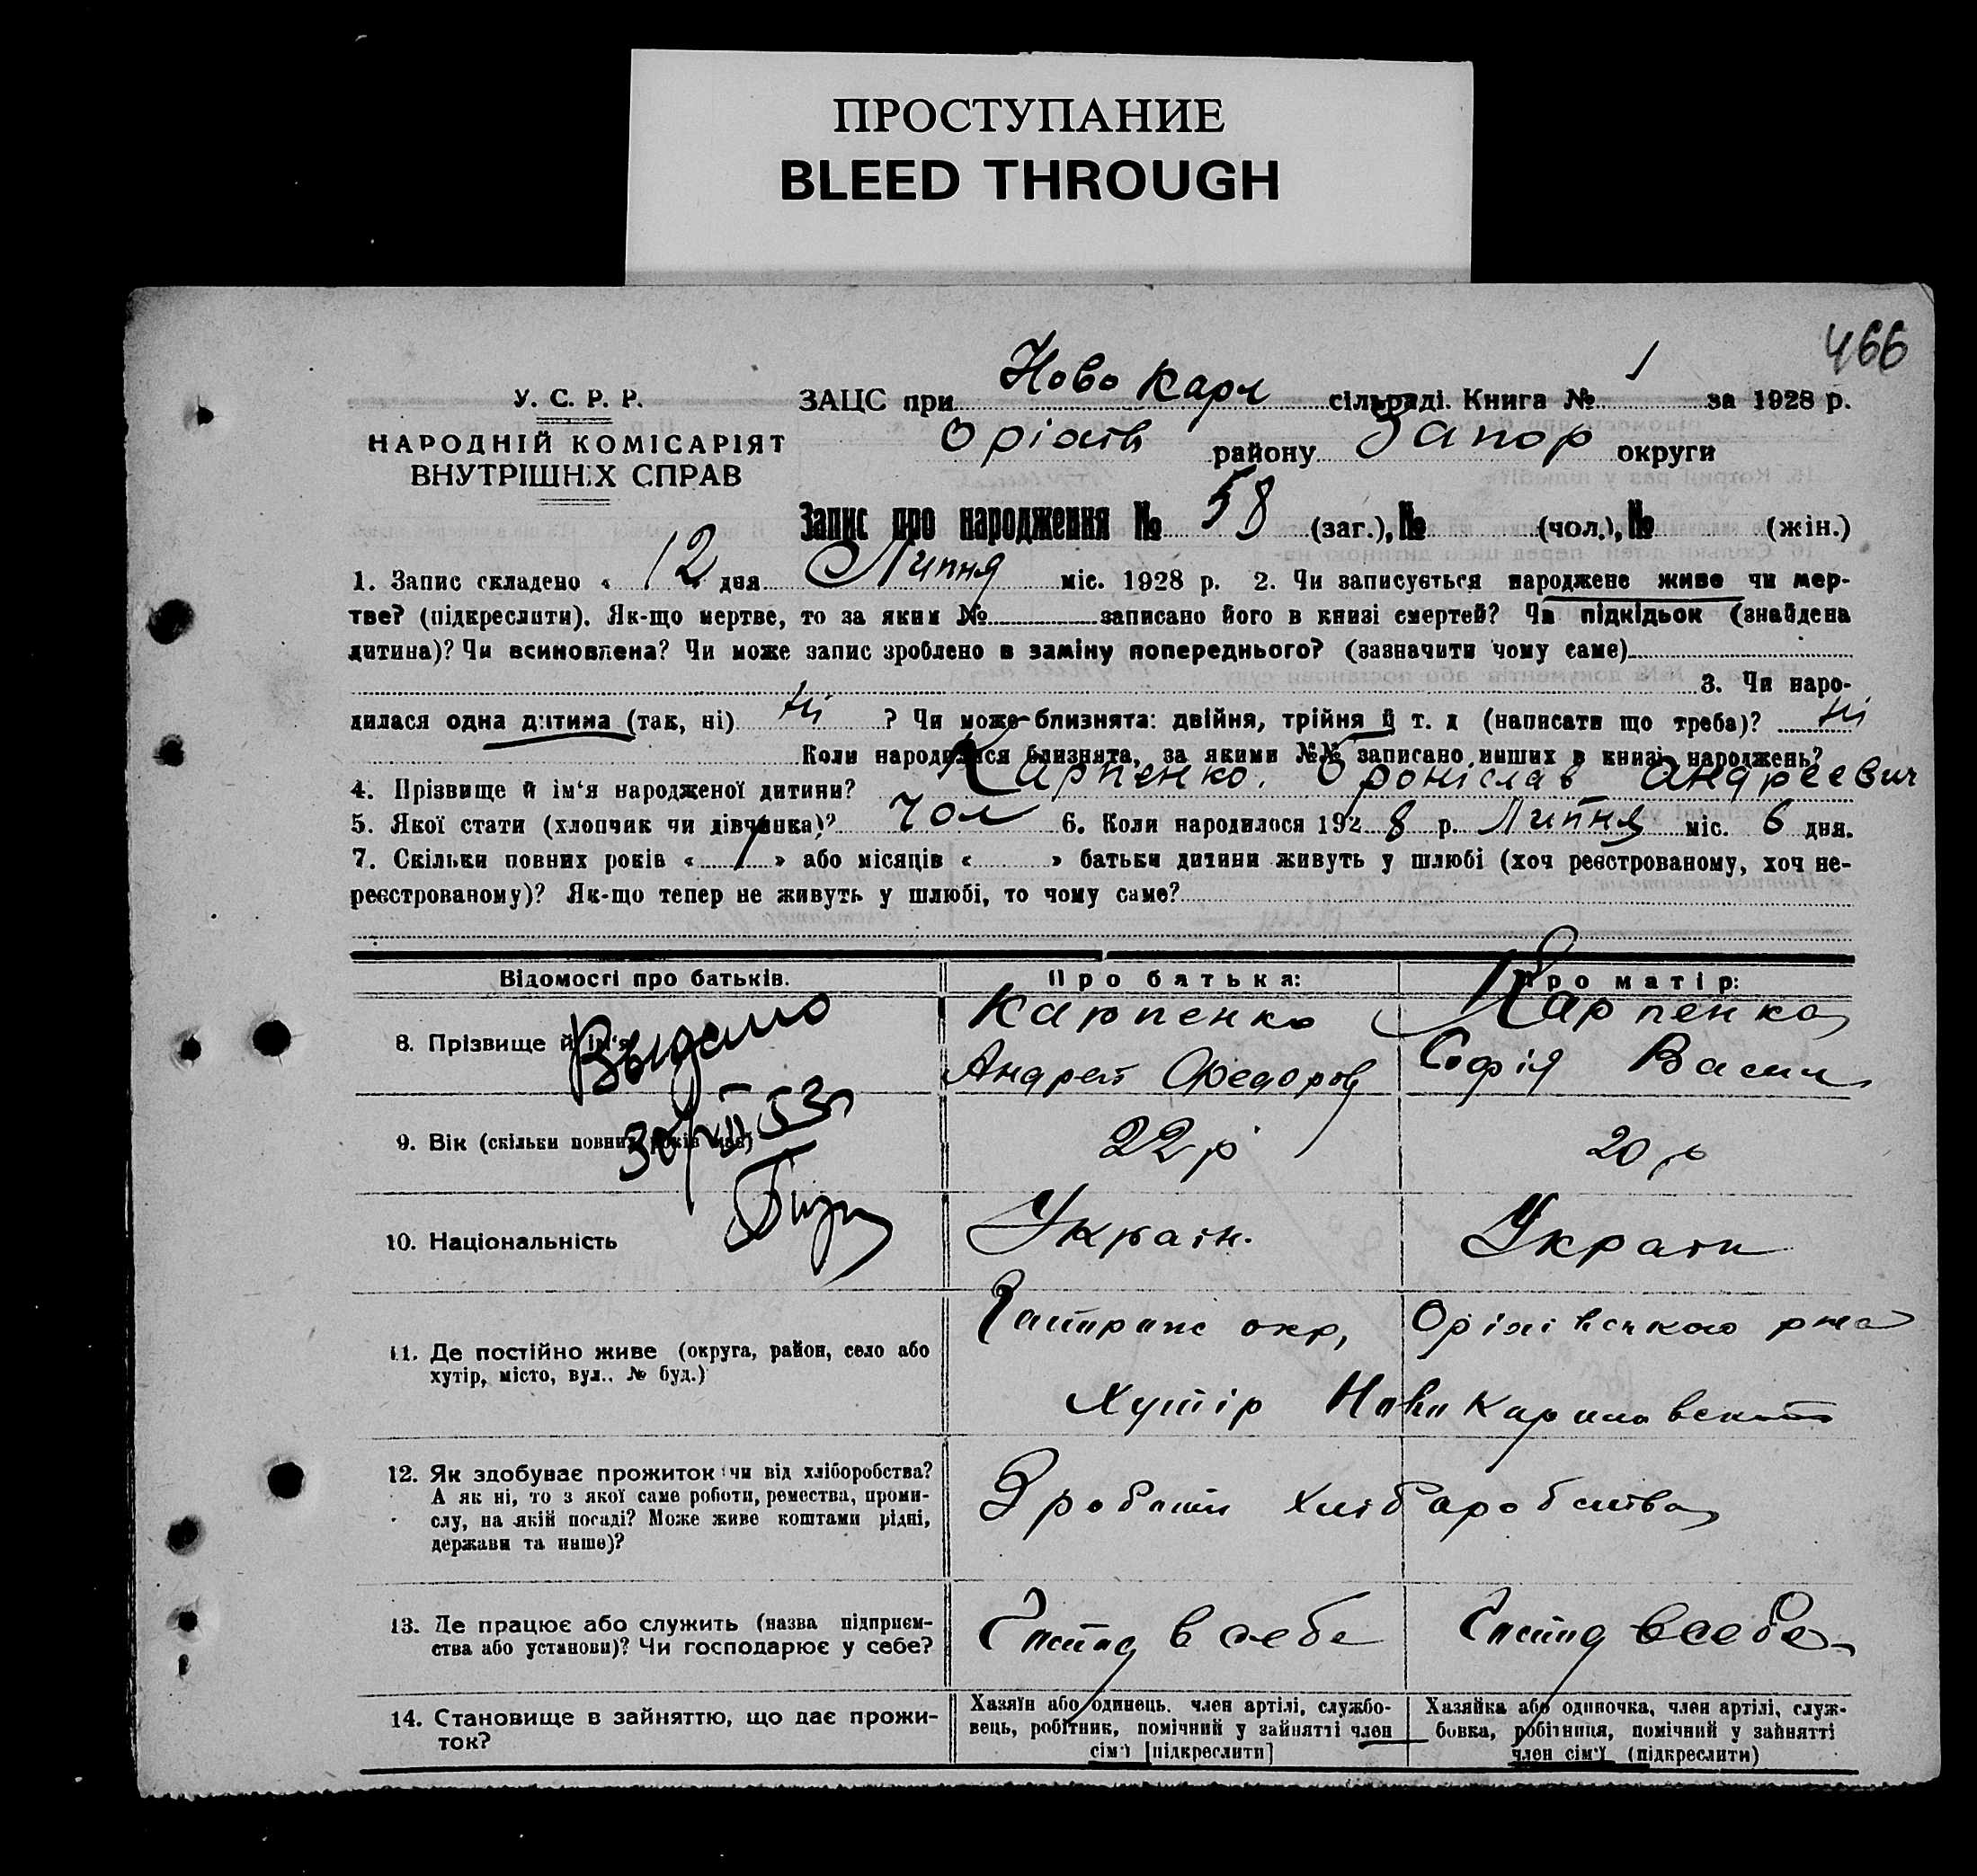 ПРОСТУПАНИЕ
BLEED THROUGH
466
У. С. Р. Р.
НАРОДНІЙ КОМІСАРІЯТ
ВНУТРІШНІХ СПРАВ
ЗАЦС при Ново Карл сільраді. Книга № 1 за 1928 р.
Оріхів району Запор округи
Запис про народження № 58 (заг.), № (чол.), № (жін.)
1. Запис складено « 12 дня Липня міс. 1928 р. 2. Чи записується народжене живе чи мер-
тве? (підкреслити). Як-що мертве, то за яким № записано його в книзі смертей? Чи підкідьок (знайдена
дитина)? Чи всиновлена? Чи може запис зроблено в заміну попереднього? (зазначити чому саме)
3. Чи наро-
дилася одна дитина (так, ні) ні ? Чи може близнята: двійня, трійня й т. д (написати що треба)? ні
Коли народилися близнята, за якими №№ записано инших в книзі народжень?
4. Прізвище й ім'я народженої дитини? Карпенко Броніслав Андреевич
5. Якої стати (хлопчик чи дівчинка)? чол 6. Коли народилося 1928 р. Липня міс. 6 дня.
7. Скільки повних років « 1 » або місяців « » батьки дитини живуть у шлюбі (хоч реєстрованому, хоч не-
реєстрованому)? Як-що тепер не живуть у шлюбі, то чому саме?
Відомості про батьків. Про батька: Про матір:
8. Прізвище й ім'я Карпенко Андрей Федоров Карпенко Софія Васил
Выдано
30/VII 53
9. Вік (скільки повних років має) 22 р 20 р
10. Національність Україн. Україн
11. Де постійно живе (округа, район, село або
хутір, місто, вул., № буд.)
окр, Оріхівського
Хутір Ново
12. Як здобуває прожиток: чи від хліборобства?
А як ні, то з якої саме роботи, ремества, проми-
слу, на якій посаді? Може живе коштами рідні,
держави та инше)?
хліборобства
13. Де працює або служить (назва підприєм-
ства або установи)? Чи господарює у себе?
в себе в себе
14. Становище в зайняттю, що дає прожи-
ток?
Хазяїн або одинець, член артілі, службо-
вець, робітник, помічний у зайнятті член
сім'ї [підкреслити]
Хазяйка або одиночка, член артілі, служ-
бовка, робітниця, помічний у зайнятті
член сім'ї (підкреслити)